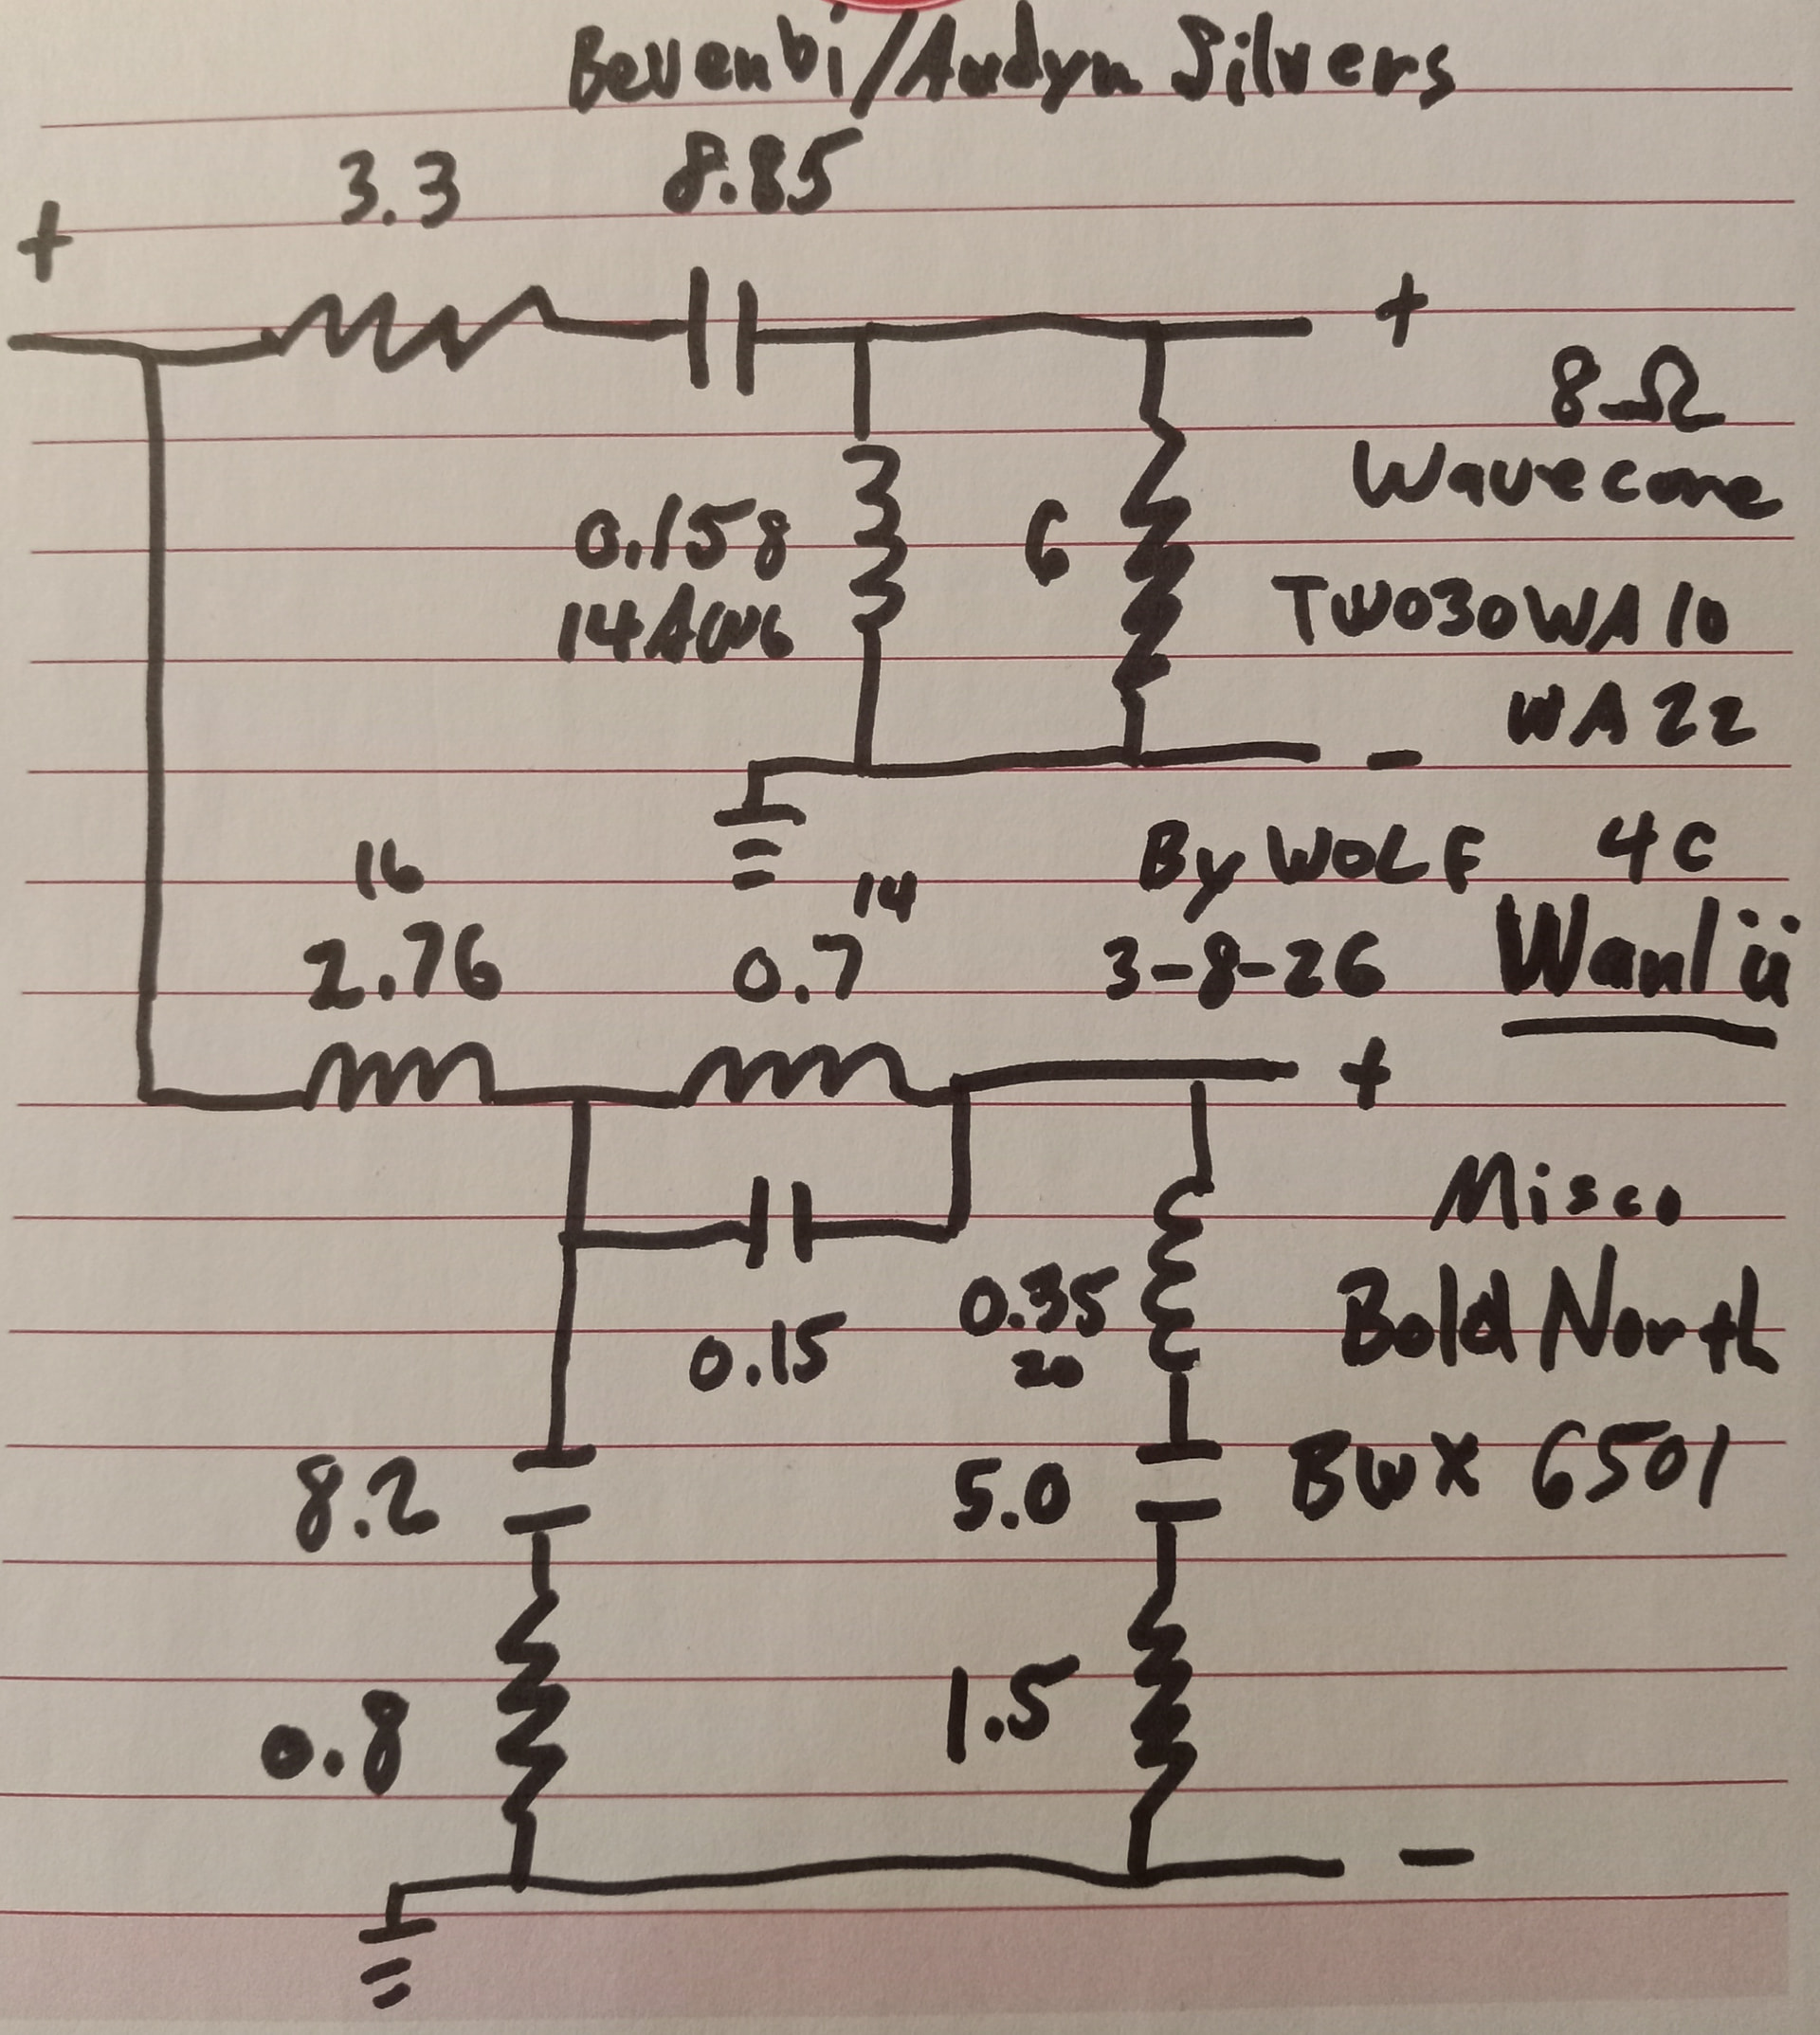 Bevenbi/Audyn Silvers
3.3 8.85
+
+
8Ω
Wavecore
0.158 6
14AWG
TW030WA10
WA22
By WOLF 4C
3-8-26 Wanlii
16 14
2.76 0.7
+
Misco
Bold North
BWX 6501
0.15
0.35
20
8.2 5.0
0.8 1.5
-
-